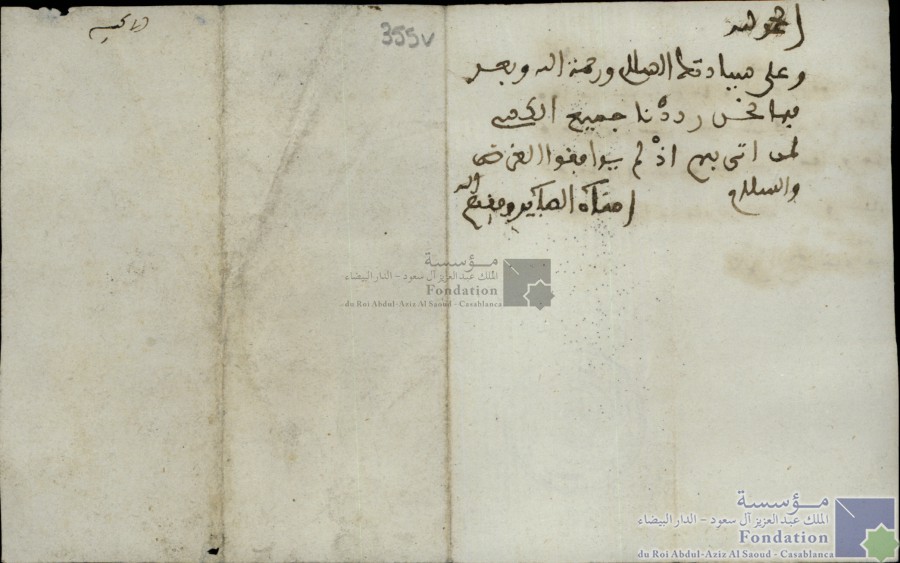 الحمد لله
وعلى سيادتكم السلام ورحمة الله وبعد
فها نحن رددنا جميع الكتب
لمن اتى بهم اذ لم يوافقوا الغرض
والسلام
الله
355v
مؤسسة
الملك عبد العزيز آل سعود - الدار البيضاء
Fondation
du Roi Abdul-Aziz Al Saoud - Casablanca
مؤسسة
الملك عبد العزيز آل سعود - الدار البيضاء
Fondation
du Roi Abdul-Aziz Al Saoud - Casablanca